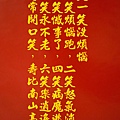 一笑沒煩惱
笑煩惱跑，二笑怒氣消
笑憾事了，四笑病魔逃
笑永不老，六笑樂逍遙
常開口笑，壽比南山高